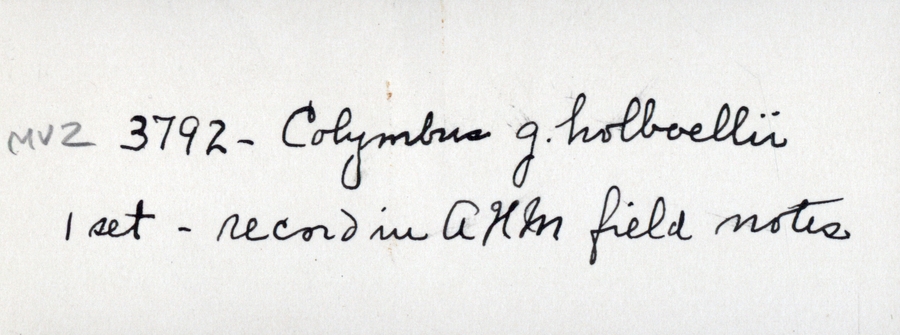 MVZ 3792- Colymbus g. holboellii
1 set - record in AHM field notes